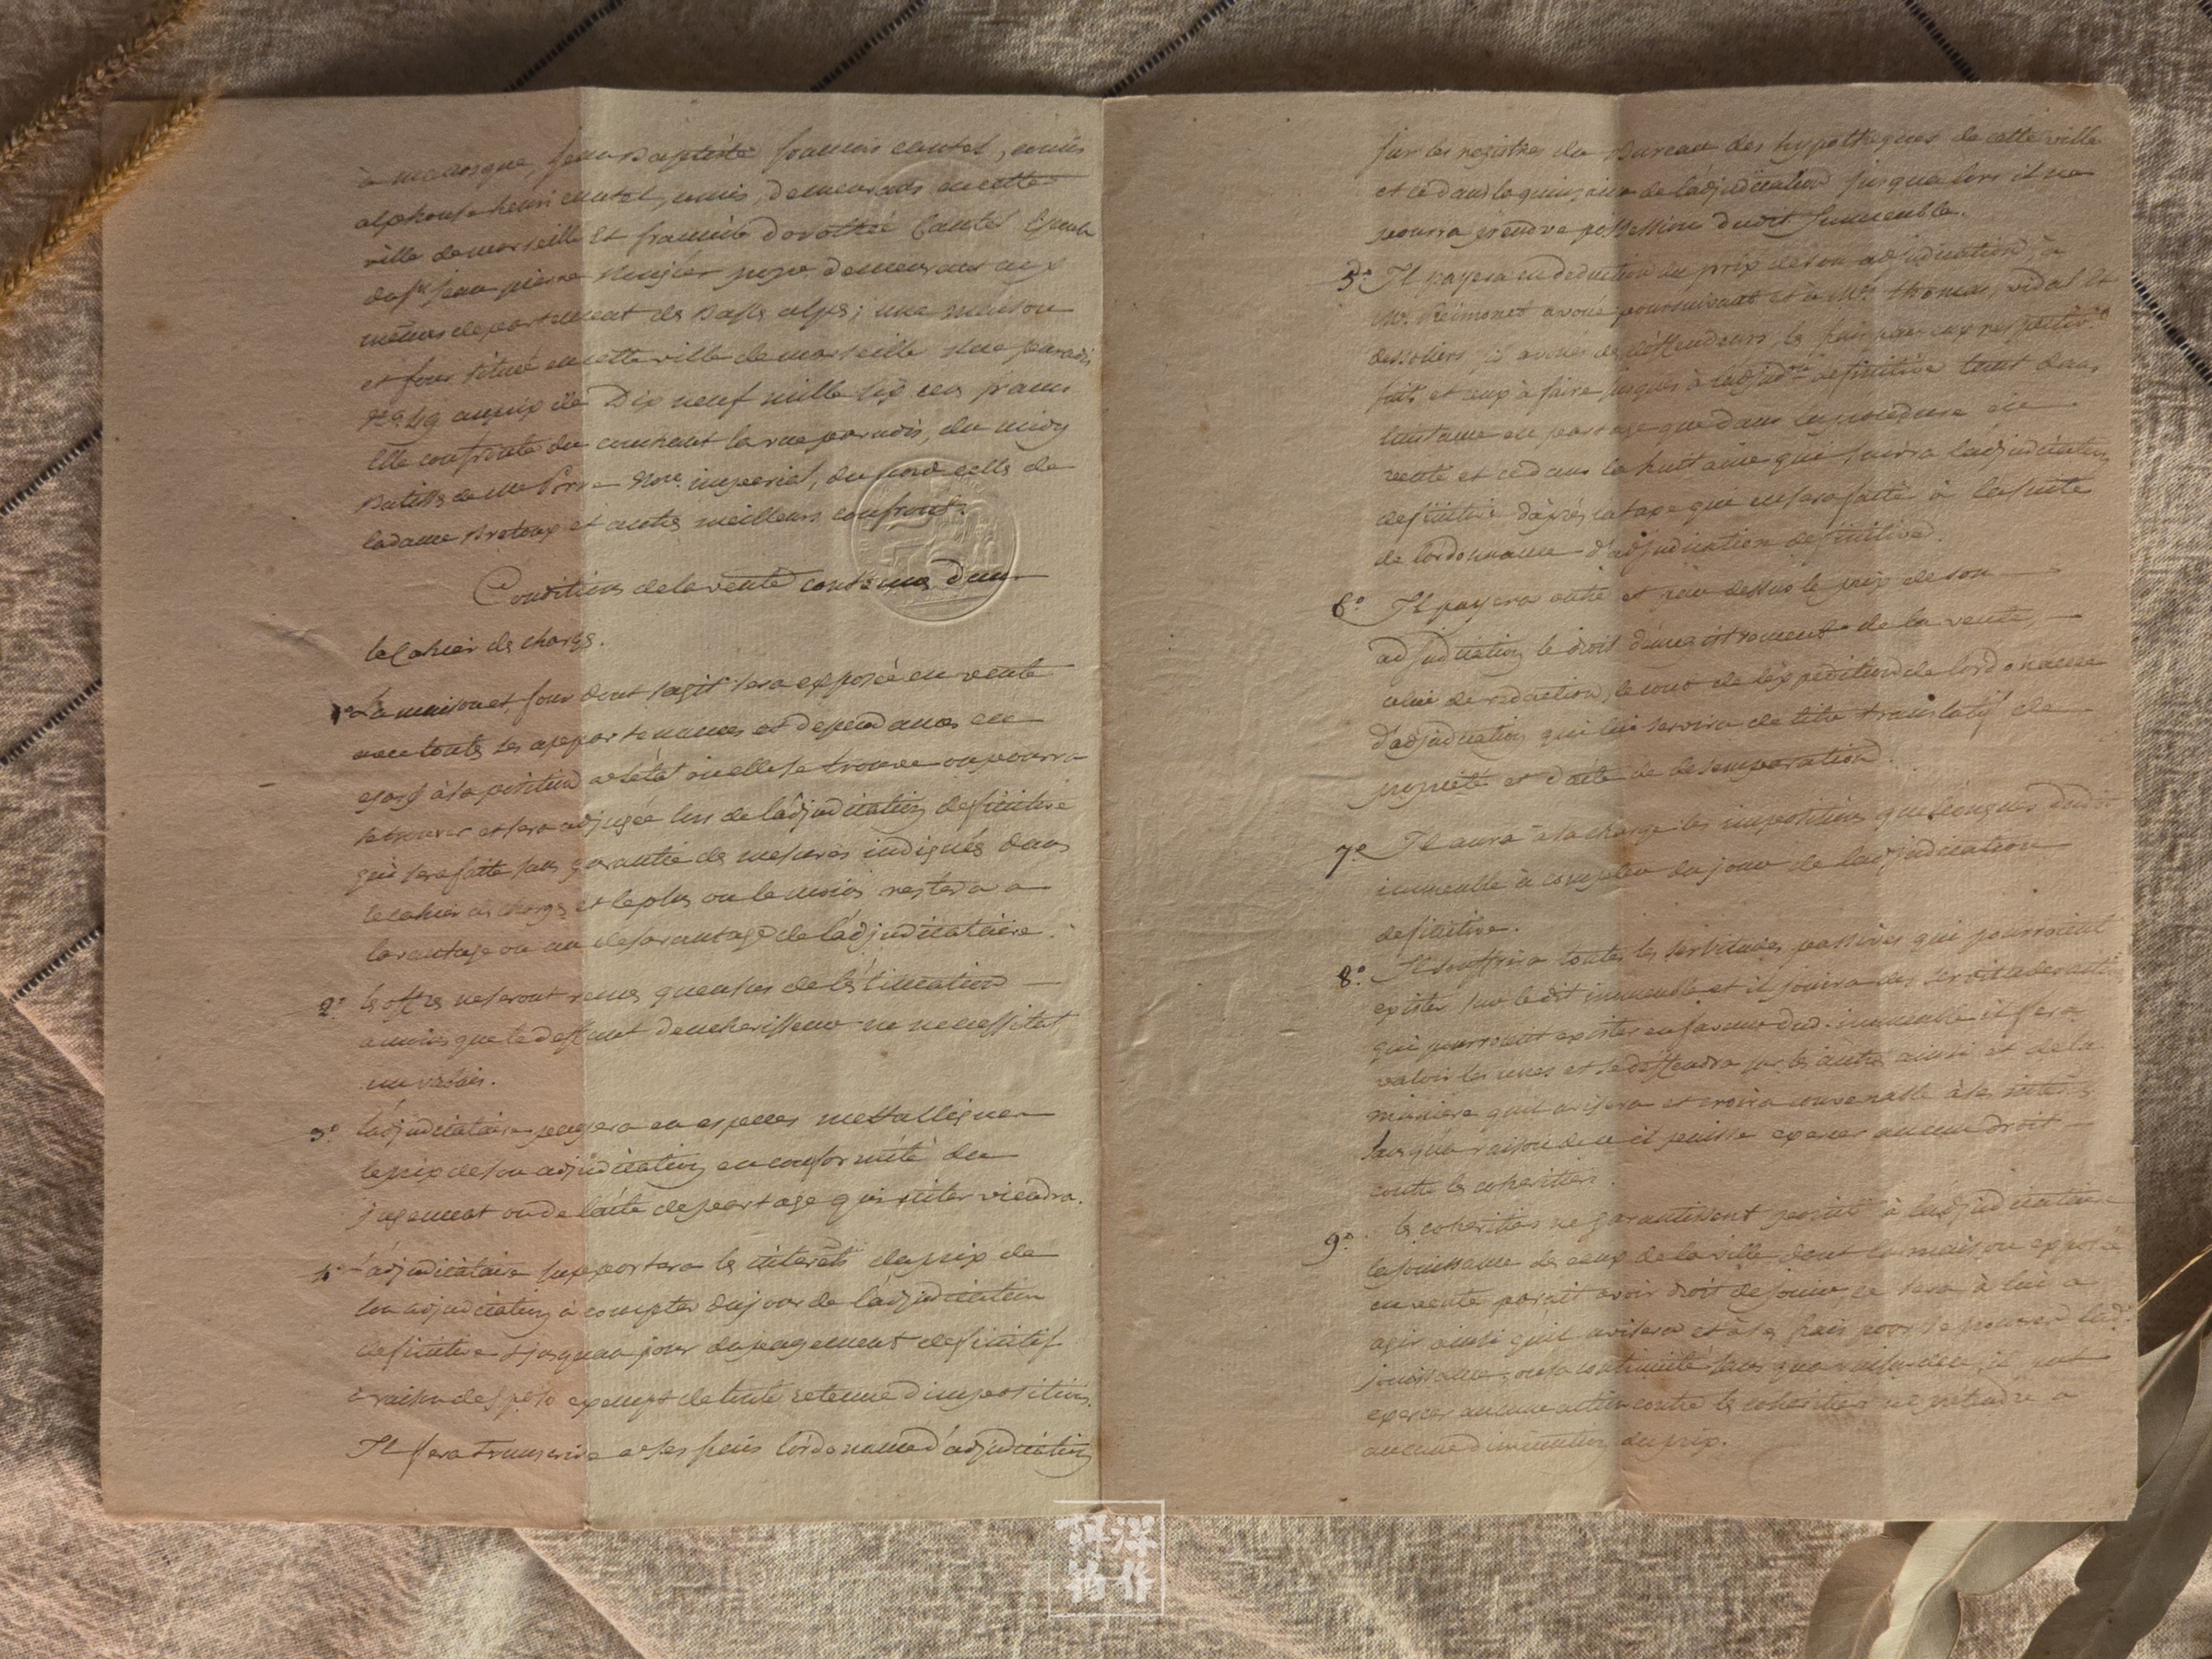 à manosque, jean Baptiste francois cantel, commis
alphonse henri cantel, commis, demeurants en cette
ville de marseille Et françoise Dorothée Cantel Epouse
du sr jean pierre juge demeurant aux
mêmes departement des Basses alpes; une maison
et four situé en cette ville de marseille rue paradis
no 49 au prix de Dix neuf mille six cens francs
Elle confronte du couchant la rue paradis, du midy
Batisse de Me Nore imperial, du nord celle de
la dame et autres meilleurs confronts.
Conditions de la vente contenues dans
le Cahier des charges.
1o La maison et four dont s'agit sera exposée en vente
avec toutes ses appartenances et dependances en
egard à sa position et l'état ou elle se trouve ou pourra
se trouver et sera adjugée lors de l'adjudication definitive
qui sera faite sans garantie des mesures indiqués dans
le cahier des charges et le plus ou le moins restera a
lavantage ou au desavantage de l'adjudicataire.
2o les offres ne seront reçues quensus de l'éstimation
amoins que le deffaut dencherisseur ne necessitat
un rabais.
3o l'adjudicataire payera en especes mettalliques
le prix de son adjudication en conformité du
jugement ou de l'acte de partage qui interviendra.
4o l'adjudicataire supportera les intérêts du prix de
son adjudication à compter du jour de l'adjudication
definitive jusquau jour du payement definitif
à raison de 5 p% exempt de toute retenue d'impositions.
Il fera transcrire a ses frais l'ordonnance d'adjudication
sur les registres du Bureau des hypothèques de cette ville
et ce dans la quinzaine de l'adjudication jusqualors il ne
pourra prendre possession dudit Immeuble.
5o Il payera en deduction du prix de son adjudication, à
Me Reimonet avoué poursuivant et à Mes thomas, vidal et
dessoliers, avoués des déffendeurs, les frais par eux respectivt
faits et ceux à faire jusques à l'adjudon definitive tant dans
linstance en partage que dans la procedure en
vente et ce dans la huitaine qui suivra l'adjudication
definitive d'après la taxe qui en sera faite à la suite
de lordonnance d'adjudication definitive.
6o Il payera outre et par dessus le prix de son
adjudication le droit d'enregistrement de la vente,
celui de redaction, le cout de l'expedition de lordonnance
d'adjudication qui lui servira de titre translatif de
proprieté et d'acte de desemparation.
7o Il aura à sa charge les impositions quelconques dudit
immeuble à compter du jour de l'adjudication
definitive.
8o Il souffrira toutes les servitudes passives qui pourroient
exister sur le dit immeuble et il jouira des servitudes actives
qui pourroient exister en faveur dud. immeuble il fera
valoir les unes et se deffendra sur les autres ainsi et de la
manière quil avisera et croira convenable à ses interets
sans qu'a raison de ce il puisse exercer aucun droit
contre les coheritiers.
9o les coheritiers ne garantissent point à l'adjudicataire
la jouissance des eaux de la ville dont la maison exposée
en vente parait avoir droit de jouir, ce sera à lui a
agir ainsi quil avisera et à ses frais pour se procurer lade
jouissance, ou sa continuité sans qua raison de ce, il put
exercer aucune action contre les coheritiers ne pretendre a
aucune diminution du prix.